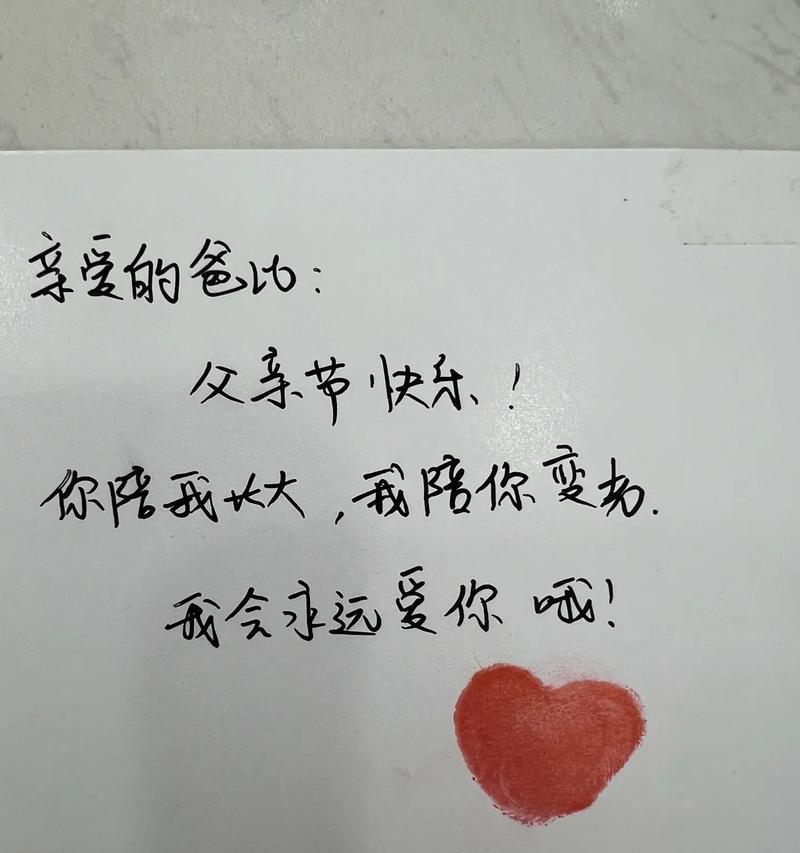 亲爱的爸比：
父亲节快乐！
你陪我长大，我陪你变老.
我会永远爱你哦！